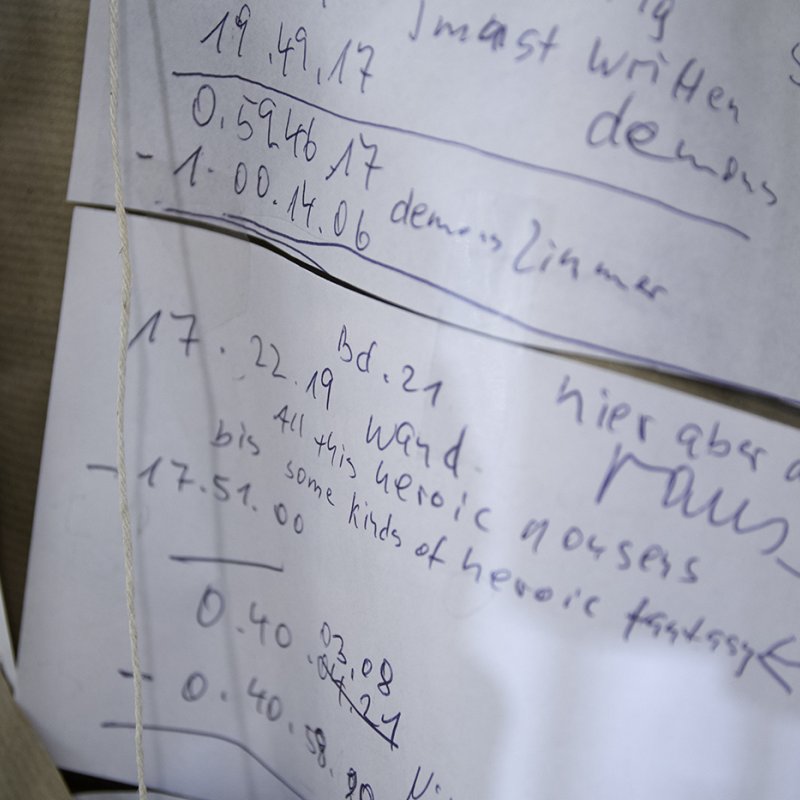 19.49.17
written
demons
0.5946.17
- 1.00.14.06 demons Zimmer
17.22.19 Bd.21
Wand.
hier aber
raus
All this heroic nonsens
bis some kinds of heroic fantasy
- 17.51.00
0.40.03.08
04.21
- 0.40.58.